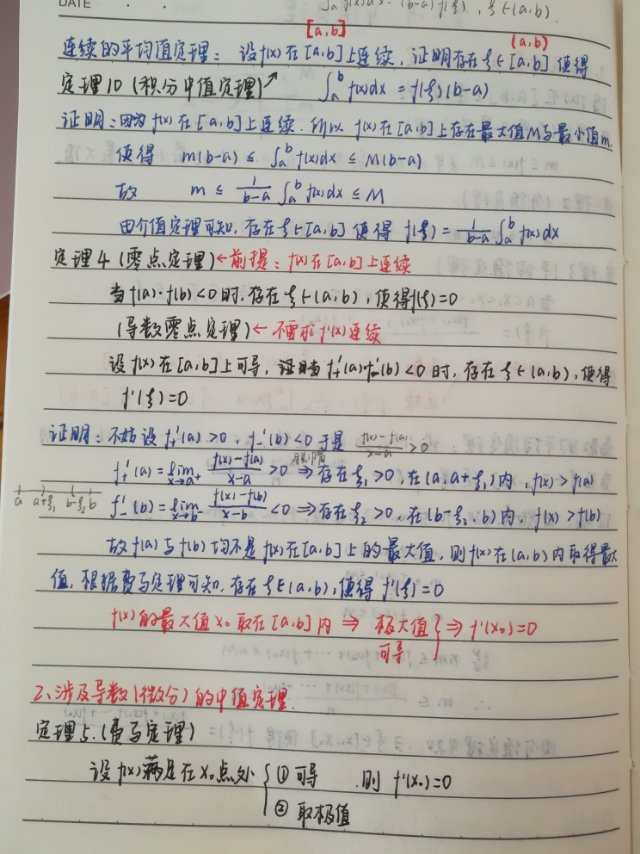 DATE
∫ₐᵇ f(x)dx = (b-a) f(ξ), ξ∈(a,b).
[a,b] (a,b)
连续的平均值定理：设f(x)在[a,b]上连续，证明存在ξ∈[a,b]使得
定理10（积分中值定理）↗ ∫ₐᵇ f(x)dx = f(ξ)(b-a)
证明：因为f(x)在[a,b]上连续，所以f(x)在[a,b]上存在最大值M与最小值m.
使得 m(b-a) ≤ ∫ₐᵇ f(x)dx ≤ M(b-a)
故 m ≤ 1/(b-a) ∫ₐᵇ f(x)dx ≤ M
由介值定理可知，存在ξ∈[a,b] 使得 f(ξ) = 1/(b-a) ∫ₐᵇ f(x)dx
定理4（零点定理）←前提：f(x)在[a,b]上连续
当f(a)·f(b)<0时，存在ξ∈(a,b)，使得f(ξ)=0
（导数零点定理）← 不要求f'(x)连续
设f(x)在[a,b]上可导，证当f₊'(a)·f₋'(b)<0时，存在ξ∈(a,b)，使得
f'(ξ)=0
证明：不妨设f₊'(a)>0，f₋'(b)<0 于是 (f(x)-f(a))/(x-a) >0
f₊'(a) = lim x→a⁺ (f(x)-f(a))/(x-a) >0 ⇒ 存在ξ₁>0，在(a,a+ξ₁)内，f(x)>f(a)
a a+ξ₁ b-ξ₂ b
f₋'(b) = lim x→b⁻ (f(x)-f(b))/(x-b) <0 ⇒ 存在ξ₂>0，在(b-ξ₂,b)内，f(x)>f(b)
故f(a)与f(b)均不是f(x)在[a,b]上的最大值，则f(x)在(a,b)内取得最大
值，根据费马定理可知，存在ξ∈(a,b)，使得f'(ξ)=0
f(x)的最大值x₀取在[a,b]内 ⇒ 极大值 } ⇒ f'(x₀)=0
可导
2、涉及导数（微分）的中值定理.
定理5.（费马定理）
设f(x)满足在x₀点处 { ① 可导 .则 f'(x₀)=0
② 取极值